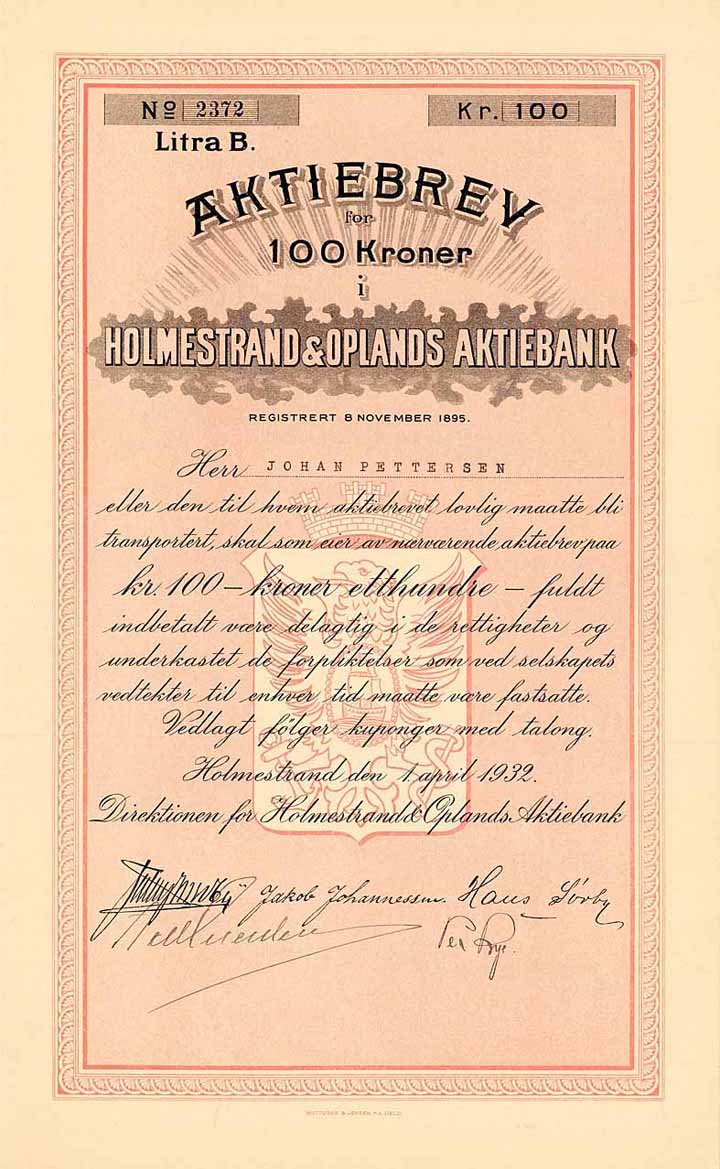 No 2372
Kr. 100
Litra B.
AKTIEBREV
for
100 Kroner
i
HOLMESTRAND & OPLANDS AKTIEBANK
REGISTRERT 8 NOVEMBER 1895.
Herr JOHAN PETTERSEN
eller den til hvem aktiebrevet lovlig maatte bli
transportert, skal som eier av nærværende aktiebrev paa
kr. 100 – kroner etthundre – fuldt
indbetalt være delagtig i de rettigheter og
underkastet de forpliktelser som ved selskapets
vedtekter til enhver tid maatte være fastsatte.
Vedlagt følger kuponger med talong.
Holmestrand den 1. april 1932.
Direktionen for Holmestrand & Oplands Aktiebank
Jakob Johannessen. Hans Sørby
Per Rye.